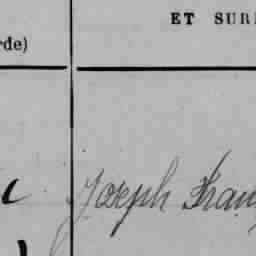 ET SUR
rde)
Joseph Fran